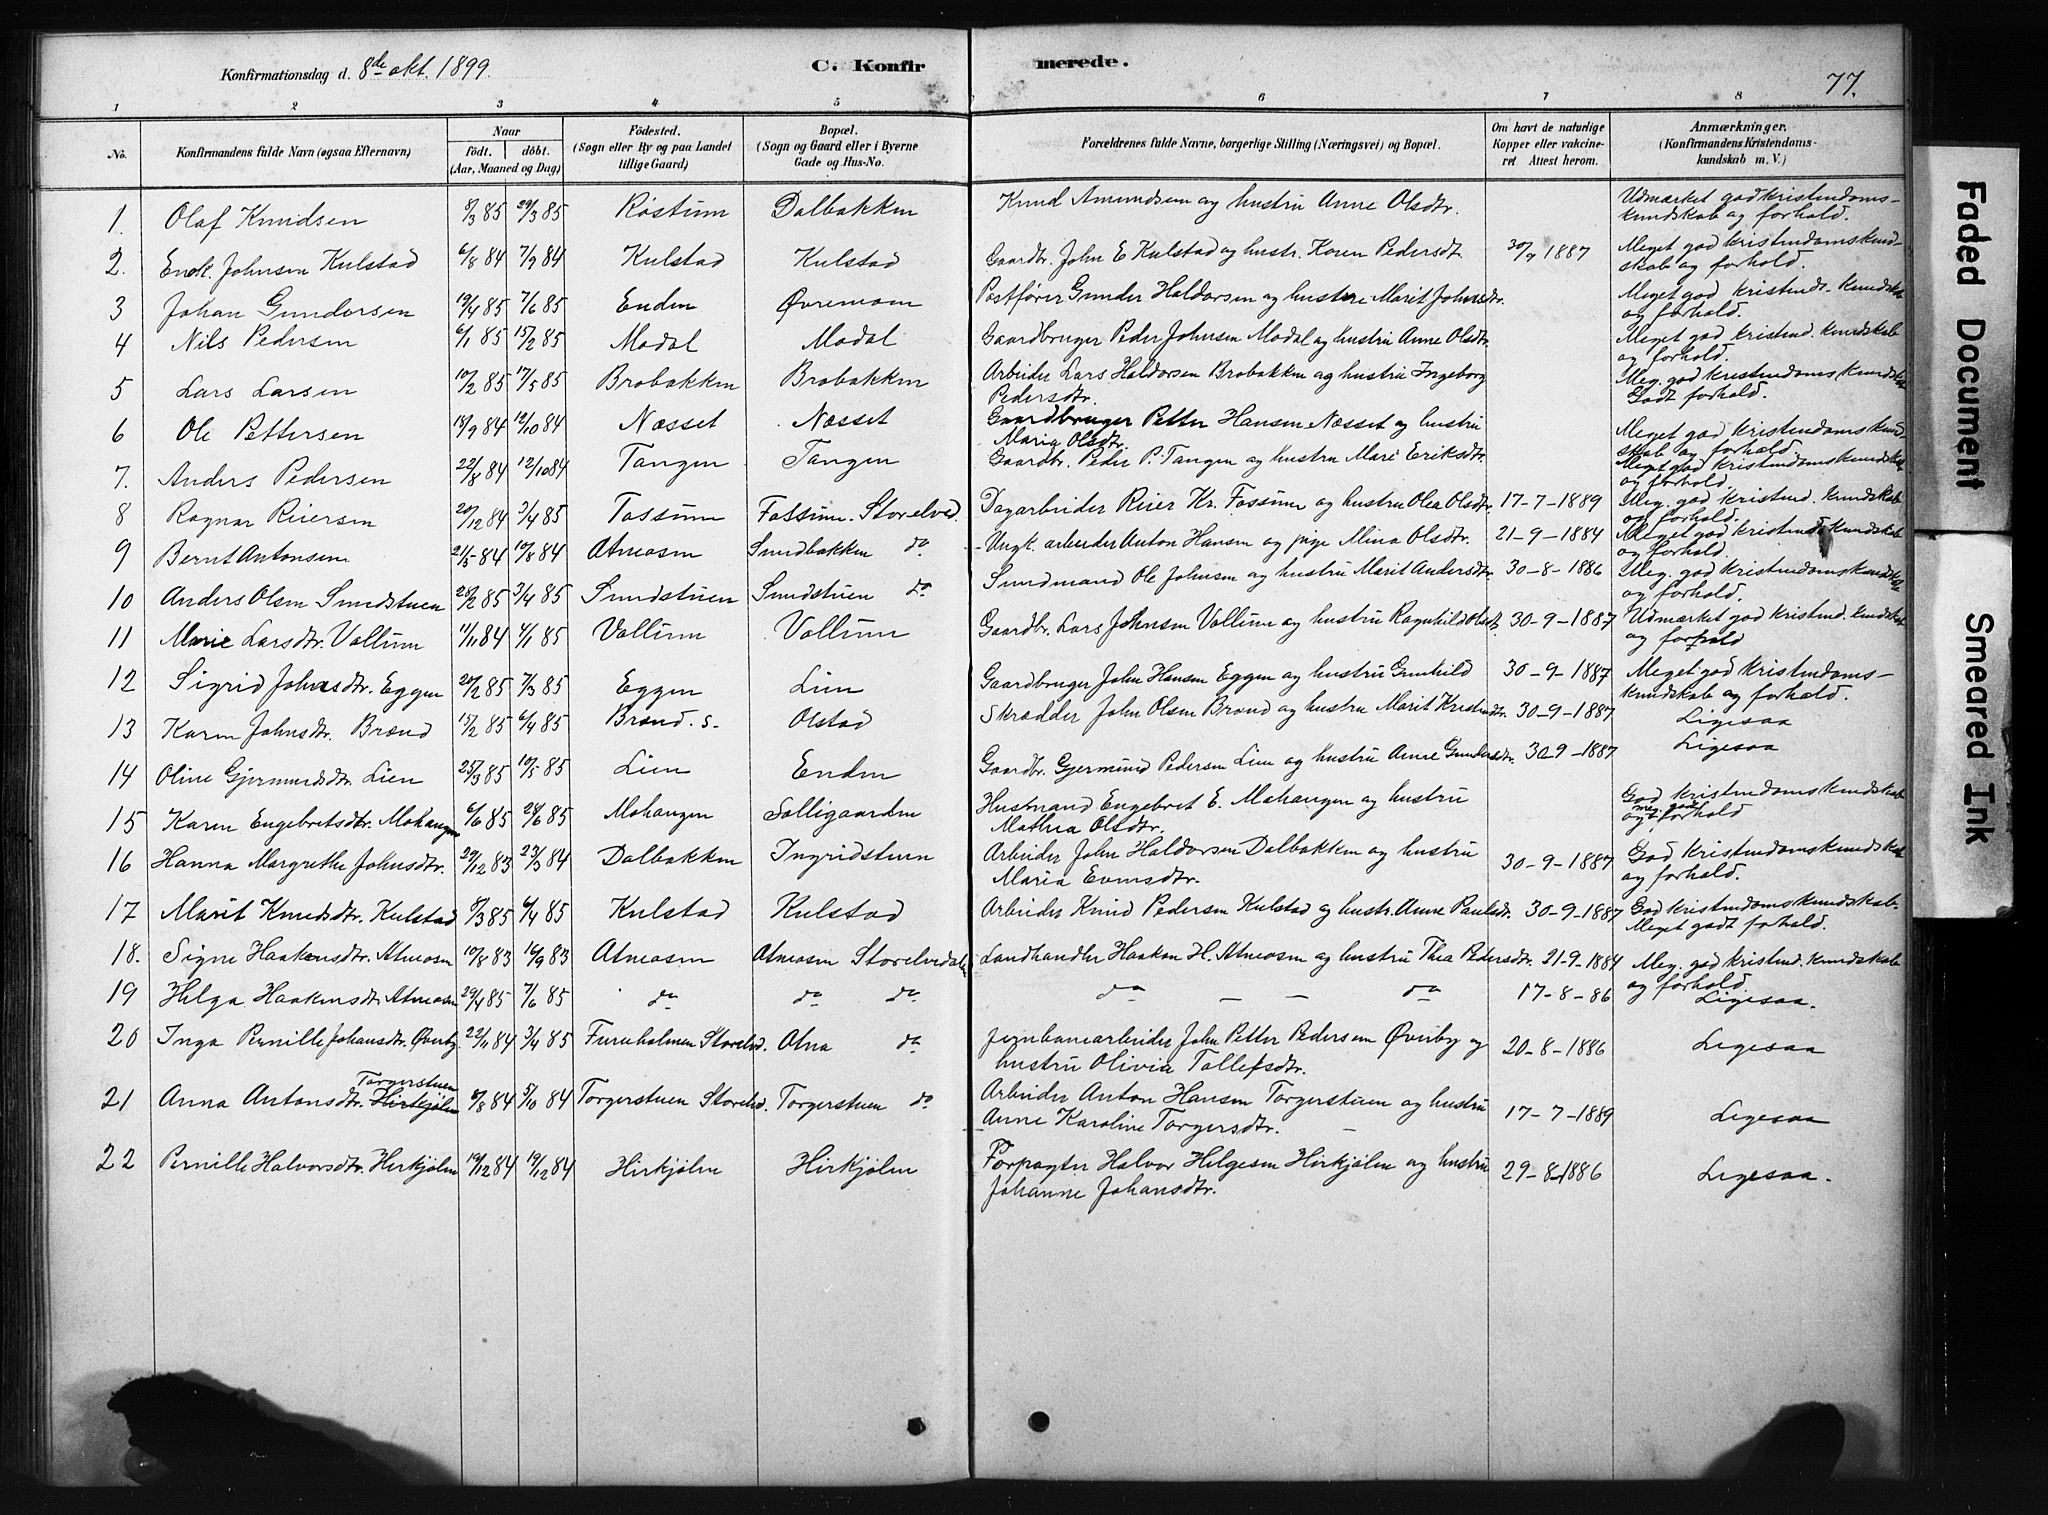 Konfirmationsdag d. 8de okt. 1899. C. Konfir merede. 77.
1 2 3 4 5 6 7 8
No. Konfirmandens fulde Navn (ogsaa Efternavn) Naar Födt. döbt. (Aar, Maaned og Dag) Födested. (Sogn eller By og paa Landet tillige Gaard) Bopæl. (Sogn og Gaard eller i Byerne Gade og Hus-No. Forældrenes fulde Navne, borgerlige Stilling (Næringsvei) og Bopæl. Om havt de naturlige Kopper eller vakcineret Attest herom. Anmærkninger. (Konfirmandens Kristendomskundskab m. V.)
1. Olaf Knudsen 8/3 85 29/3 85 Røstum Dalbakken Knud Amundsen og hustru Anne Olsdtr. Udmærket god kristendoms-
kundskab og forhold.
2. Enok Johnsen Kulstad 6/8 84 7/9 84 Kulstad Kulstad Gaardbr. John E Kulstad og hustr. Karen Pedersdt. 30/9 1887 Meget god kristendomskund-
skab og forhold.
3 Johan Gundersen 19/4 85 7/6 85 Enden Øvremom Postfører Gunder Haldorsen og hustru Marit Johnsdtr. Meget god kristend. kundskab
og forhold.
4 Nils Pedersen 6/1 85 15/2 85 Modal Modal Gaardbruger Peder Johnsen Modal og hustru Anne Olsdtr. Meget god kristend. kundskab
og forhold.
5 Lars Larsen 10/2 85 17/5 85 Brobakken Brobakken Arbeider Lars Haldorsen Brobakken og hustru Ingeborg Meg. god kristendoms kundskab
Pedersdtr. Godt forhold.
6 Ole Pettersen 15/9 84 12/10 84 Næsset Næsset Gaardbruger Petter Hansen Næsset og hustru Meget god kristendomskund-
Maria Olsdtr. skab og forhold.
7. Anders Pedersen 22/8 84 12/10 84 Tangen Tangen Gaardbr. Peder P. Tangen og hustru Mari Eriksdtr. Meget god kristendomskundskab
og forhold.
8 Ragnar Reiersen 20/12 84 3/4 85 Fossum Fossum. Storelved. Dagarbeider Reier Kr. Fossum og hustru Olea Olsdtr. 17-7-1889 Meg. god kristend. kundskab
og forhold.
9 Bernt Antonsen 21/5 84 10/8 84 Atneosen Sundbakken do Ungk. arbeider Anton Hansen og pige Mina Olsdtr. 21-9-1884 Meget god kristend. kundskab
og forhold.
10 Anders Olsen Sundstuen 20/2 85 3/4 85 Sundstuen Sundstuen do Sundmand Ole Johnsen og hustru Marit Andersdtr. 30-8-1886 Meg. god kristendomskundskab
og forhold.
11 Marie Larsdtr. Vollum 11/11 84 4/1 85 Vollum Vollum Gaardbr. Lars Johnsen Vollum og hustru Ragnhild Olsdt. 30-9-1887 Udmærket god kristend. kundskab
og forhold
12 Sigrid Johnsdtr. Eggen 20/2 85 7/3 85 Eggen Lien Gaardbruger John Hansen Eggen og hustru Gunhild 30-9-1887 Meget god kristendoms-
kundskab og forhold.
13 Karen Johnsdtr. Brænd 15/2 85 6/4 85 Brænd. s. Olstad Skrædder John Olsen Brænd og hustru Marit Kristensdtr. 30-9-1887 Ligesaa
14 Oline Gjermundsdtr. Lien 25/3 85 10/5 85 Lien Enden Gaardbr. Gjermund Pedersen Lien og hustru Anne Gundersdtr. 30-9-1887 Ligesaa
15 Karen Engebretsdtr. Mohangen 6/6 85 28/6 85 Mohangen Solligaarden Husmand Engebret E. Mohangen og hustru God kristendomskundskab
Mathea Olsdtr. og meg. godt forhold
16 Hanna Margrethe Johnsdtr. 29/12 83 23/3 84 Dalbakken Ingridstuen Arbeider John Haldorsen Dalbakken og hustru 30-9-1887 God kristendomskundskab
Maria Evensdtr. og forhold.
17 Marit Knudsdtr. Kulstad 8/3 85 6/4 85 Kulstad Kulstad Arbeider Knud Pedersen Kulstad og hustr. Anne Paulsdtr. 30-9-1887 God kristendomskundskab.
Meget godt forhold.
18. Signe Haakensdtr. Atneosen 10/8 83 16/9 83 Atneosen Atneosen Storelvedalen Landhandler Haaken H. Atneosen og hustru Thea Pedersdtr. 21-9-1884 Meg. god kristend. kundskab
og forhold.
19 Helga Haakensdtr Atneosen 29/4 85 7/6 85 do do do do — — do 17-8-86 Ligesaa.
20 Inga Pernille Johansdtr. Øverby. 22/11 84 3/4 85 Fureholmen Storelvd. Atna do Jernbanearbeider John Petter Pedersen Øverby og 20-8-1886 Ligesaa
hustru Olivia Tollefsdtr.
21 Anna Antonsdtr. Hirkjølen Torgerstuen 8/8 84 5/10 84 Torgerstuen Storelvd. Torgerstuen do Arbeider Anton Hansen Torgerstuen og hustru 17-7-1889 Ligesaa
Anne Karoline Torgersdtr. —
22 Pernille Halvorsdtr. Hirkjølen 19/12 84 19/12 84 Hirkjølen Hirkjølen Forpagter Halvor Helgesen Hirkjølen og hustru 29-8-1886 Ligesaa.
Johanne Johansdtr.
Faded Document
Smeared Ink